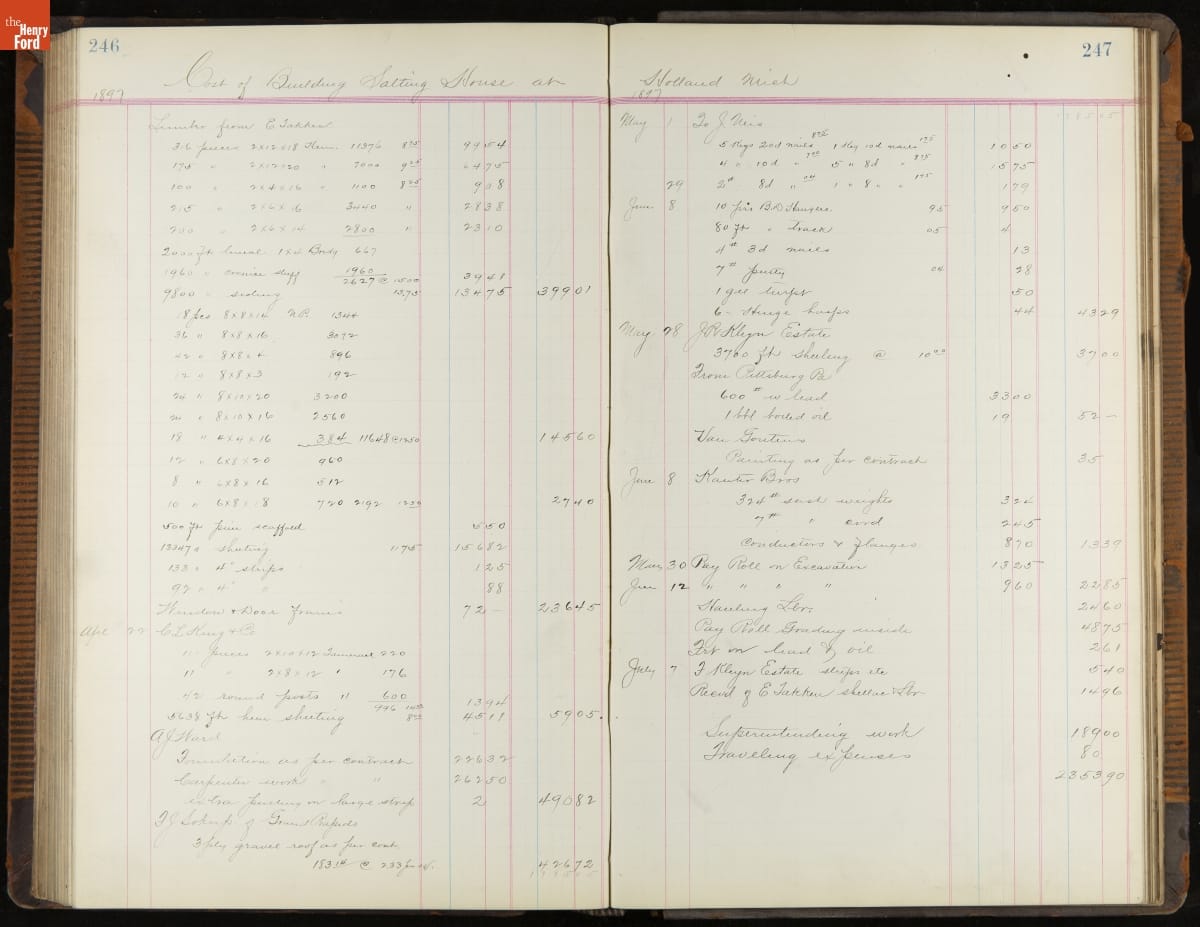 the
Henry
Ford
246
Cost of Building Salting House at
1897
Lumber from E Takken
316 pieces 2x12x18 Hem. 11376 8 75 99 54
175 " 2x12x20 " 7000 9 25 64 75
100 " 2x4x16 " 1100 8 25 9 08
215 " 2x6x16 3440 " 28 38
200 " 2x6x14 2800 " 23 10
2000 ft lineal 1x4 Bords 667
1960 " cornice stuff 1960
2627 @ 1500 39 41
9800 " siding 1375 134 75 399 01
18 pcs 8x8x14 N.P. 1344
36 " 8x8x16 3072
42 " 8x8x4 896
12 " 8x8x3 192
24 " 8x10x20 3200
24 " 8x10x16 2560
18 " 4x4x16 384 11648 @ 1250 145 60
12 " 6x8x20 960
8 " 6x8x16 512
10 " 6x8x18 720 2192 1250 27 40
500 ft pine scaffold 5 50
13347 " sheeting 1175 156 82
133 " 4" strips 1 25
92 " 4" " 88
Window & Door Frames 72 — 236 45
Apl 22 C L King & Co
11 pieces 2x10x12 220
11 " 2x8x12 " 176
42 round posts 11 600
996 1400 13 94
5638 ft hem sheeting 8 00 45 11 59 05
A J Ward
Foundation as per contract 226 32
Carpenter work " " 262 50
extra on large strip 2 490 82
of Grand Rapids
3 ply gravel roof as per cont.
183 @ 233 426 72
247
Holland Mich
1897
May 1 To J Nies
5 Kegs 20d nails 1 Keg 10d nails 1 75 10 50
4 " 10d " 5 " 8d " 15 75
29 2# 8d " 1 " 8 " " 1 75 1 79
June 8 10 prs B.D Hangers 95 9 50
80 ft " track 05 4
4# 3d nails 13
7# putty 04 28
1 gal turpt 50
6 - Hinge hasps 44 43 29
May 28 J R Kleyn Estate
3700 ft sheeting @ 10 00 37 00
From Pittsburg Pa
600 # w lead 33 00
1 bbl boiled oil 19 52 —
Van
Painting as per contract 35
June 8 Kanter Bros
324 # sash weights 3 24
7# " cord 2 45
Conductors & Flanges 8 70 13 39
May 30 Pay Roll on Excavation 13 25
June 12 " " " " 9 60 22 85
Hauling Lbr. 24 60
Pay Roll Grading inside 48 75
Frt on lead & oil 2 61
July 7 J Kleyn Estate strips etc 5 40
Recvd of E Takken shellac & lbr 14 96
Superintending work 189 00
Traveling expenses 80
2353 90